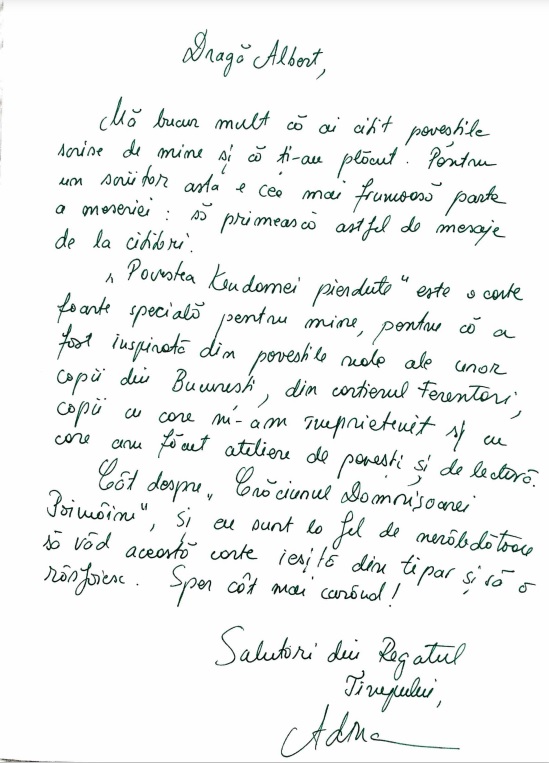 Dragă Albert,
Mă bucur mult că ai citit poveștile
scrise de mine și că ți-au plăcut. Pentru
un scriitor asta e cea mai frumoasă parte
a meseriei: să primească astfel de mesaje
de la cititori.
„Povestea Kendamei pierdute" este o carte
foarte specială pentru mine, pentru că a
fost inspirată din poveștile reale ale unor
copii din București, din cartierul Ferentari,
copii cu care m-am împrietenit și cu
care am făcut ateliere de povești și de lectură.
Cât despre „Crăciunul Domnișoarei
Poimâine", și eu sunt la fel de nerăbdătoare
să văd această carte ieșită din tipar și să o
răsfoiesc. Sper cât mai curând!
Salutări din Regatul
Timpului,
Adina